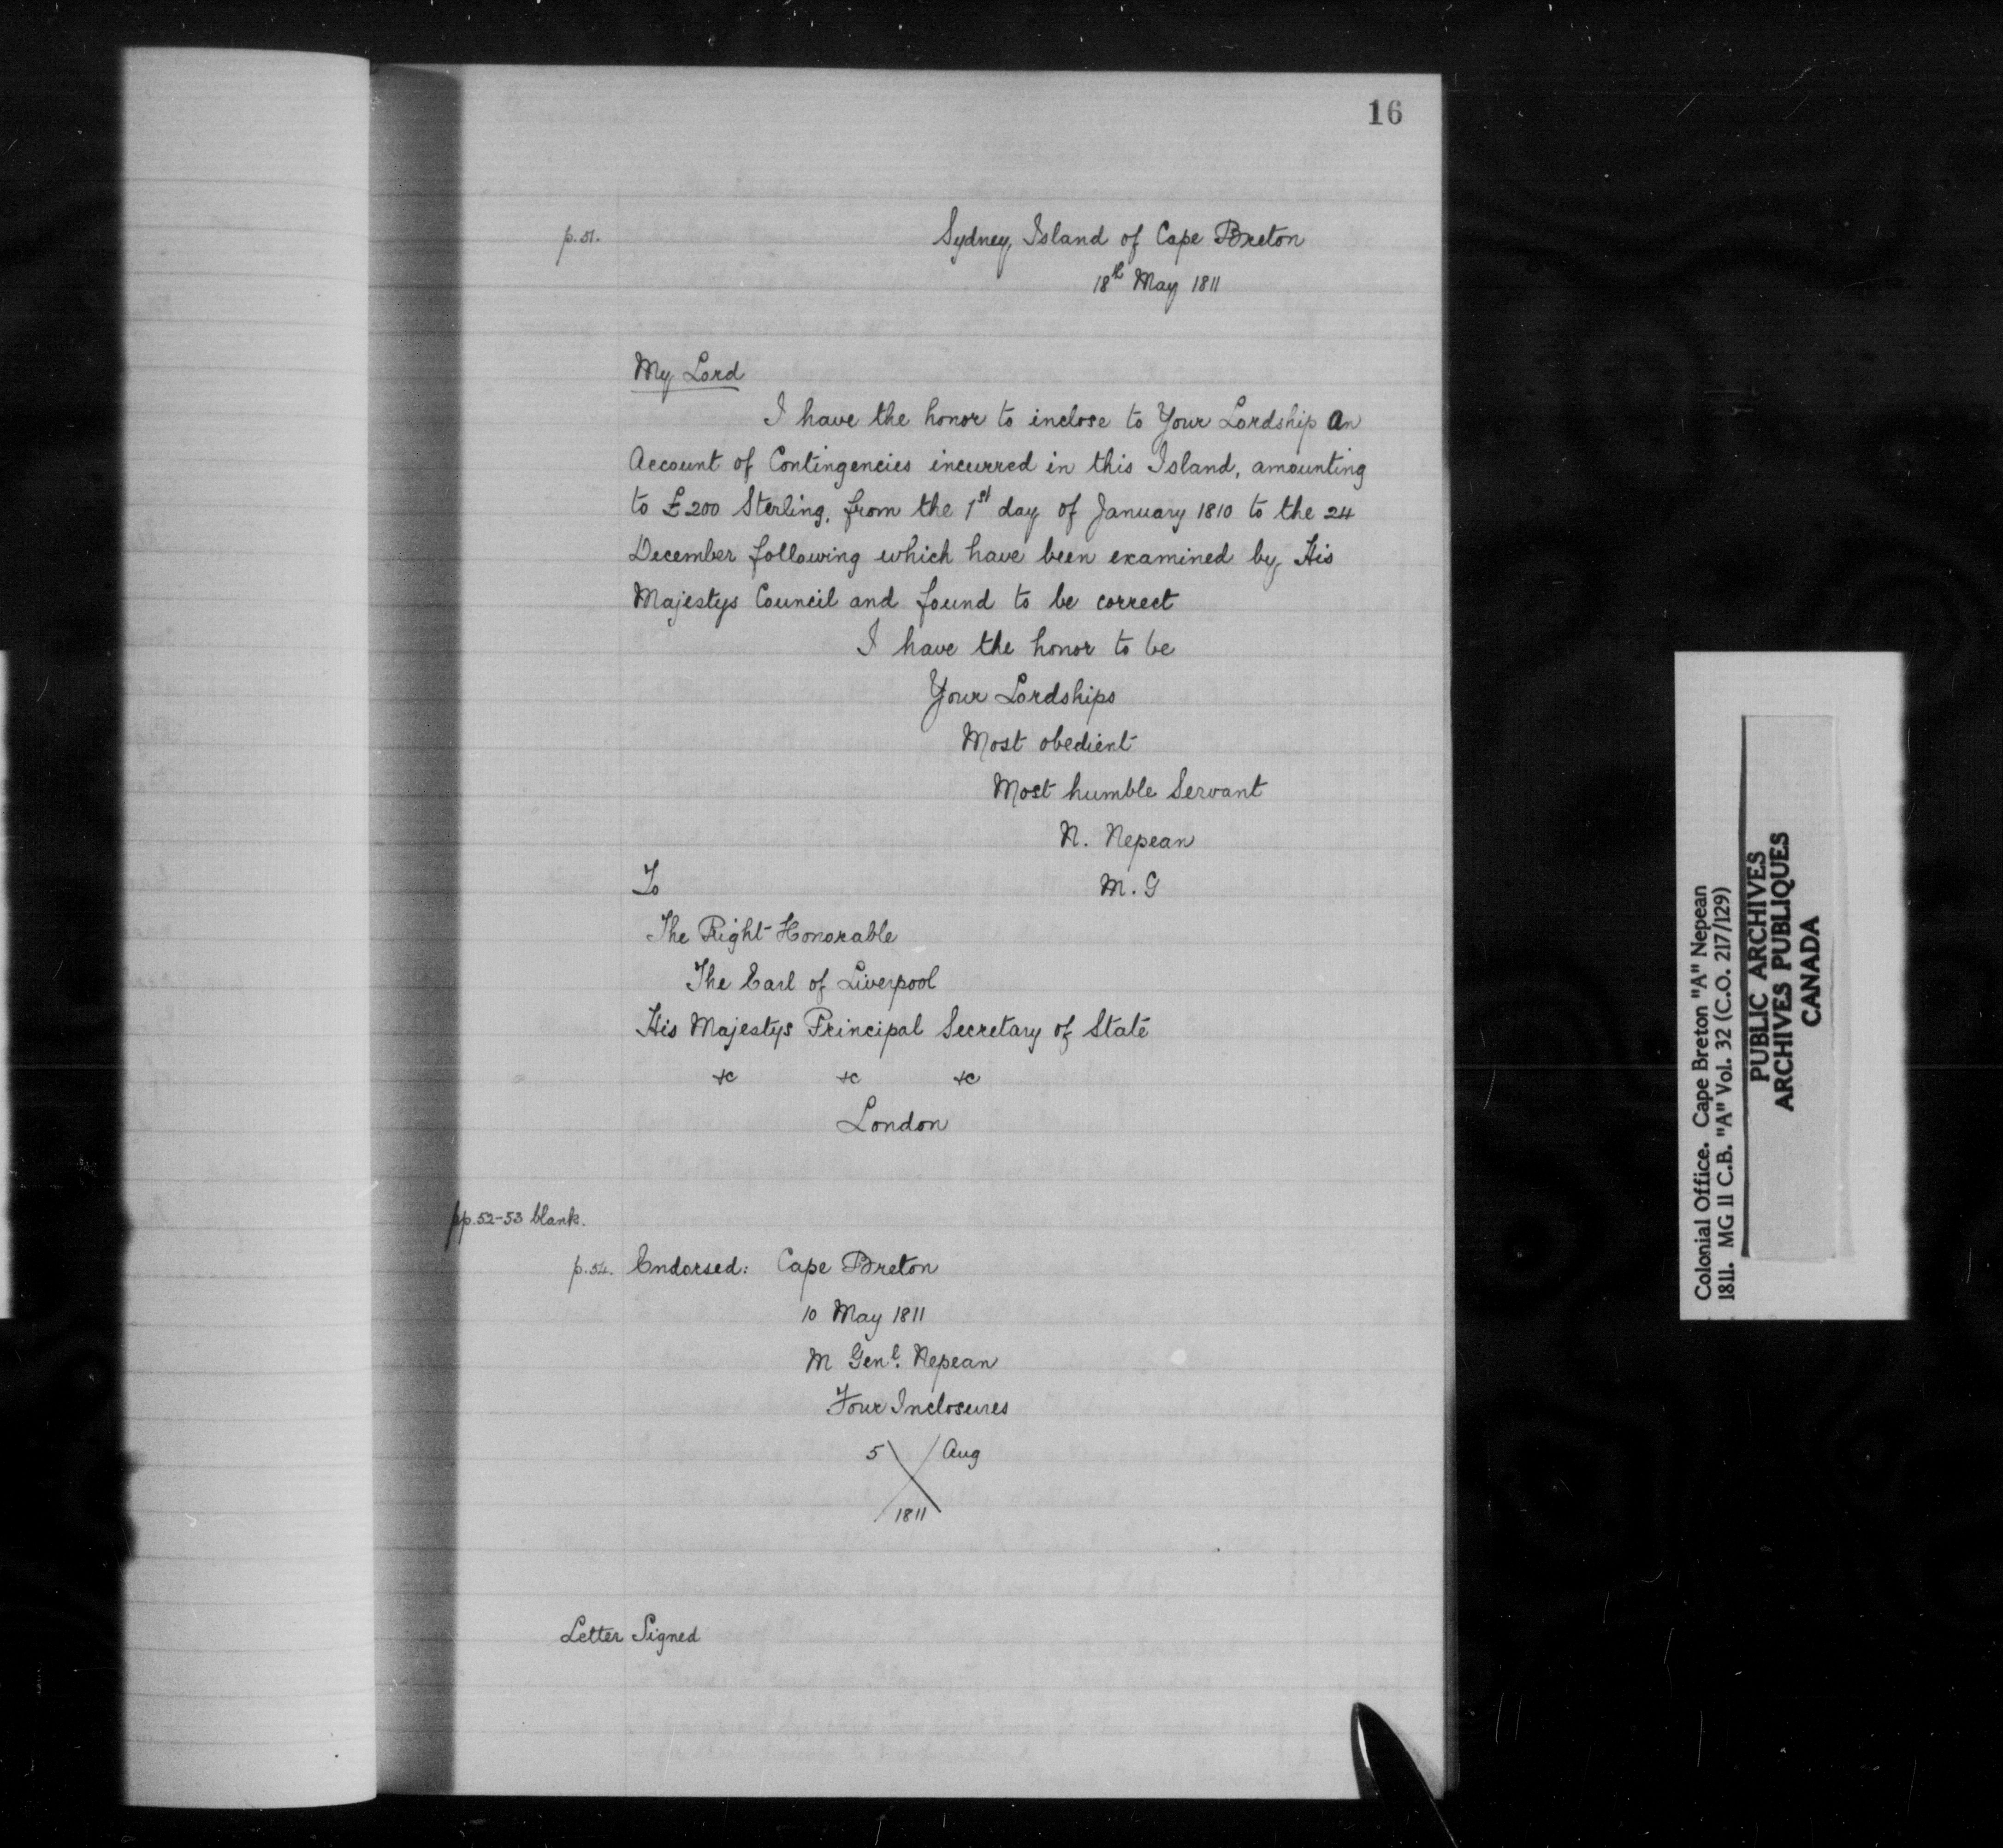 16
p.51.
Sydney, Island of Cape Breton
18th May 1811
My Lord
I have the honor to inclose to Your Lordship an
Account of Contingencies incurred in this Island, amounting
to £200 Sterling, from the 1st day of January 1810 to the 24
December following which have been examined by His
Majestys Council and found to be correct
I have the honor to be
Your Lordships
Most obedient
Most humble Servant
N. Nepean
M. G
To
The Right Honorable
The Earl of Liverpool
His Majestys Principal Secretary of State
&c &c &c
London
pp.52-53 blank.
p.54. Endorsed: Cape Breton
10 May 1811
M Genl. Nepean
Four Inclosures
5 Aug
1811
Letter Signed
Colonial Office. Cape Breton "A" Nepean
1811. MG 11 C.B. "A" Vol. 32 (C.O. 217/129)
PUBLIC ARCHIVES
ARCHIVES PUBLIQUES
CANADA